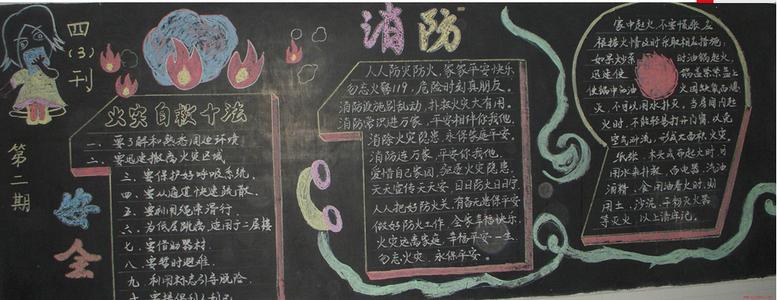 四(3)刊
第二期
安全
消防
火灾自救十法
一、要了解和熟悉周边环境
二、要迅速撤离火灾区域
三、要保护好呼吸系统.
四、要从通道快速疏散.
五、要利用绳索滑行.
六、为低层跳离,适用于二层楼
七、要借助器材.
八、要暂时避难.
九、利用标志引导脱险.
十、要提倡利人利己
人人防火防火,家家平安快乐
勿忘火警119,危险时刻真朋友。
消防设施别乱动,扑救火灾大有用。
消防常识进万家,平安相伴你我他,
消除火灾隐患,永保家庭平安,
消防连万家,平安你我他,
爱惜自己家园,驱逐火灾隐患,
天天宣传天天安,日日防火日日宁,
人人把好防火关,
做好防火工作,全家幸福快乐,
火灾远离家庭,幸福平安一生,
勿忘火灾,永保平安。
家中起火不要慌张,应
根据火情及时采取相应措施:
如果炒菜时油锅起火,
迅速使锅盖紧紧盖上
使锅中的油火因缺氧而熄
灭,不可以用水扑灭,当房间内起
火时,不能轻易打开门窗,以免
空气对流,形成大面积火灾,
纸张、木头或布起火时,可
用水来扑救,而电器、汽油
酒精、食用油着火时,则
用土、沙泥、干粉灭火器
等灭火,以上请牢记。